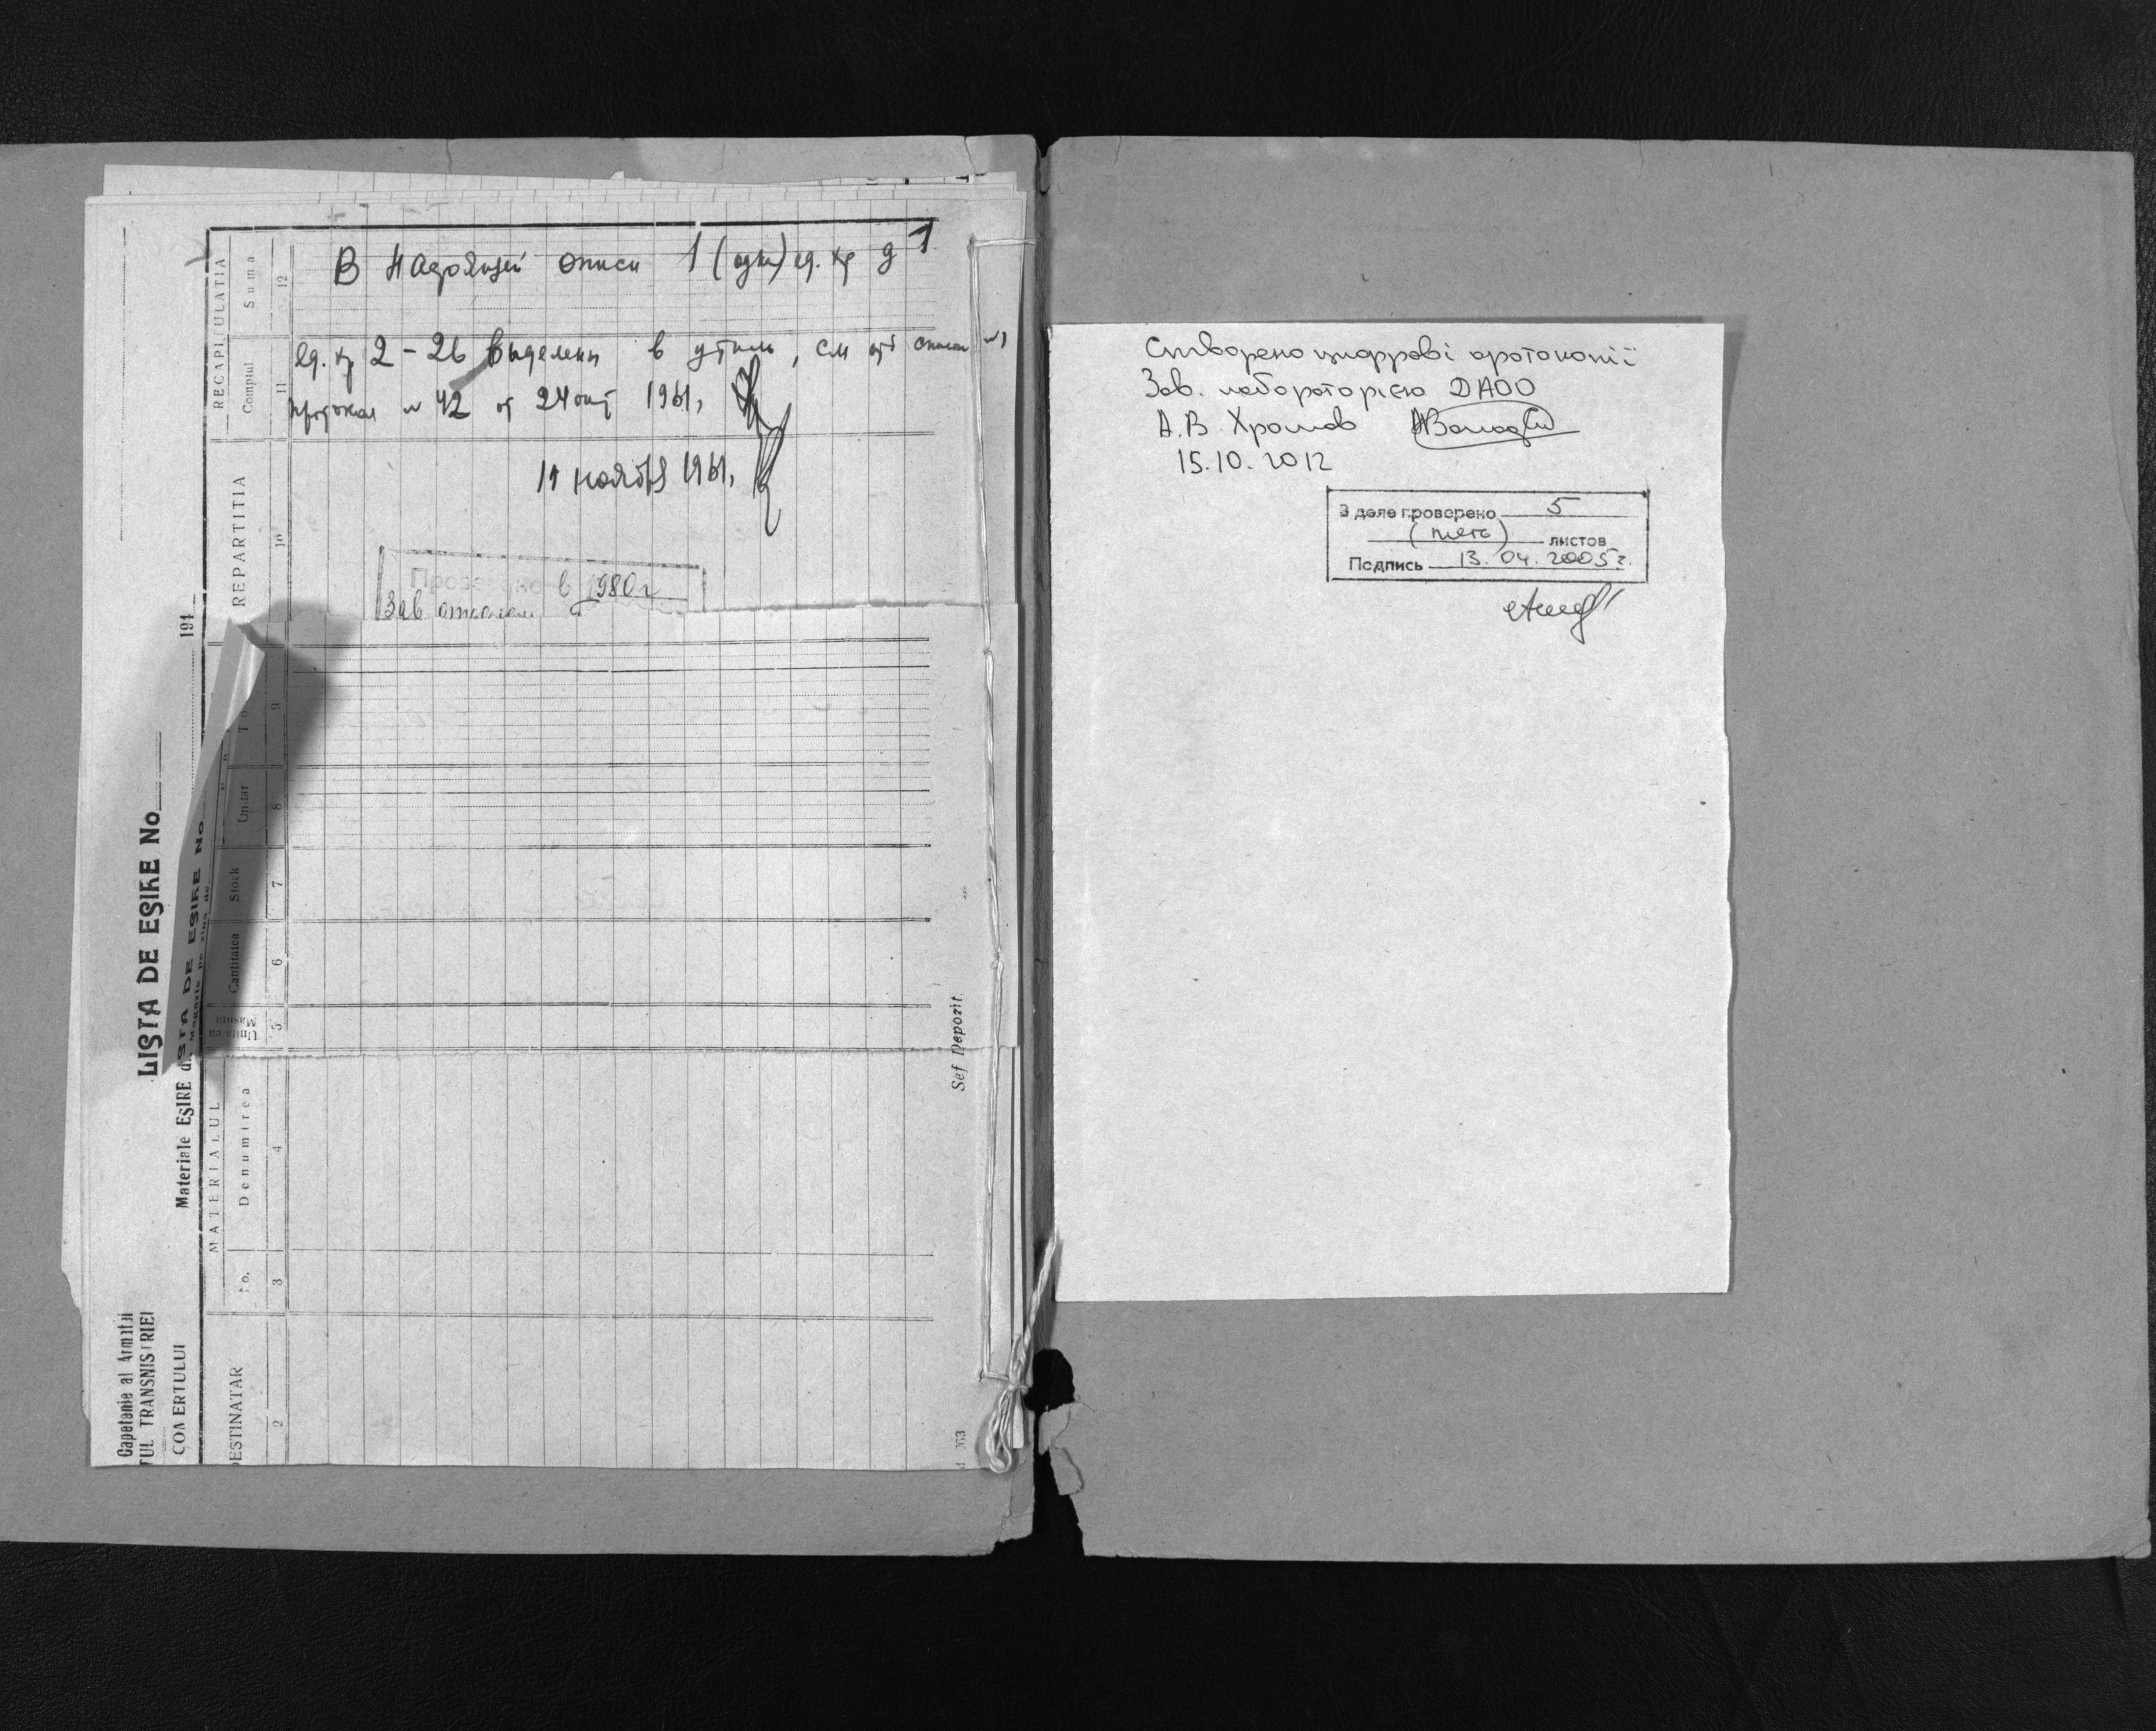 В настоящей описи 1 (одна) ед. хр д 1
Ед. хр 2-26 выделены в утиль, см описи №1
протокол № 42 от 24 окт 1961,
19 ноября 1961,
Проверено в 1980 г
Зав отделом
LISTA DE EŞIRE No
Materiale EŞIRE
194
LISTA DE EŞIRE No
Capetanie al Armatii
TUL TRANSNISTRIEI
DESTINATAR
MATERIALUL
REPARTITIA
RECAPITULATIA
No.
Denumirea
Unitatea Masura
Cantitatea
Stock
Unitar
Comptul
Suma
2
3
4
5
6
7
8
9
10
11
12
Sef Depozit.
263
Створено цифрові фотокопії
Зав. лабораторією ДАОО
А.В. Хромов
15.10.2012
В деле проверено 5
(пять) листов
Подпись 13.04.2005г.